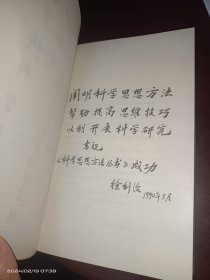 阐明科学思想方法
帮助提高思维技巧
以利开展科学研究
书祝
《科学思想方法丛书》成功
徐利治
1990年5月
2024/02/19 07:39